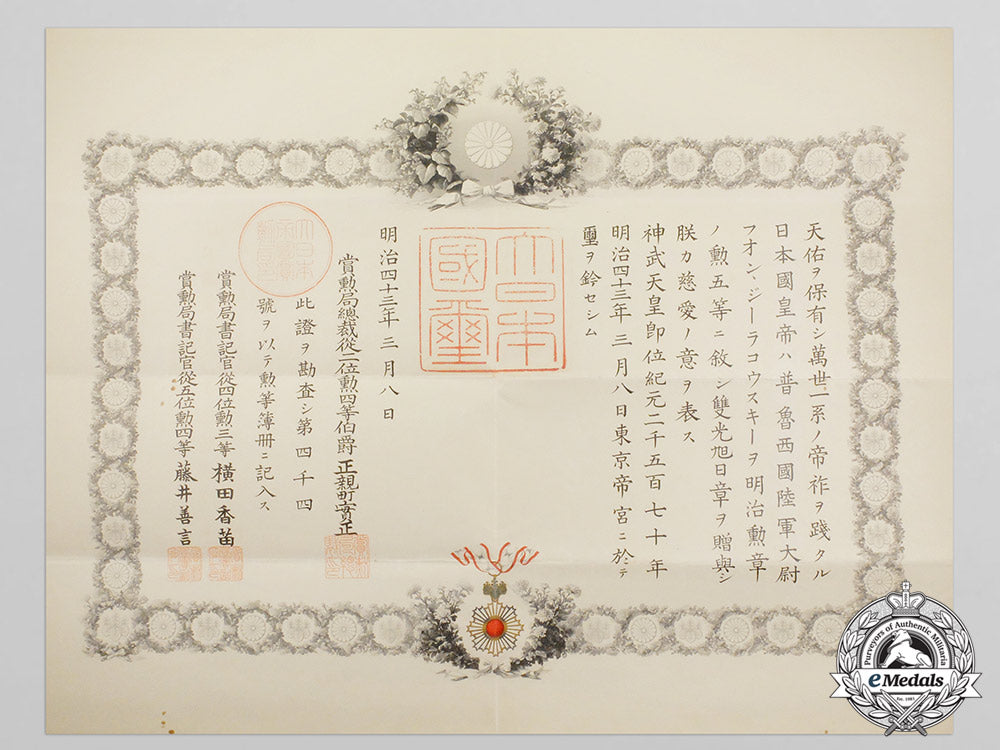 天佑ヲ保有シ萬世一系ノ帝祚ヲ踐タル
日本國皇帝ハ普魯西國陸軍大尉
フオン、ジーラコウスキーヲ明治勲章
ノ勲五等ニ敘シ雙光旭日章ヲ贈與シ
朕カ慈愛ノ意ヲ表ス
神武天皇即位紀元二千五百七十年
明治四十三年三月八日東京帝宮ニ於テ
璽ヲ鈐セシム
大日本
國璽
明治四十三年三月八日
賞勲局總裁從二位勲四等伯爵正親町實正
此證ヲ勘査シ第四千四
號ヲ以テ勲等簿册ニ記入ス
賞勲局書記官從四位勲三等橫田香苗
賞勲局書記官從五位勲四等藤井善言
Purveyors of Authentic Militaria
eMedals
Est. 1987